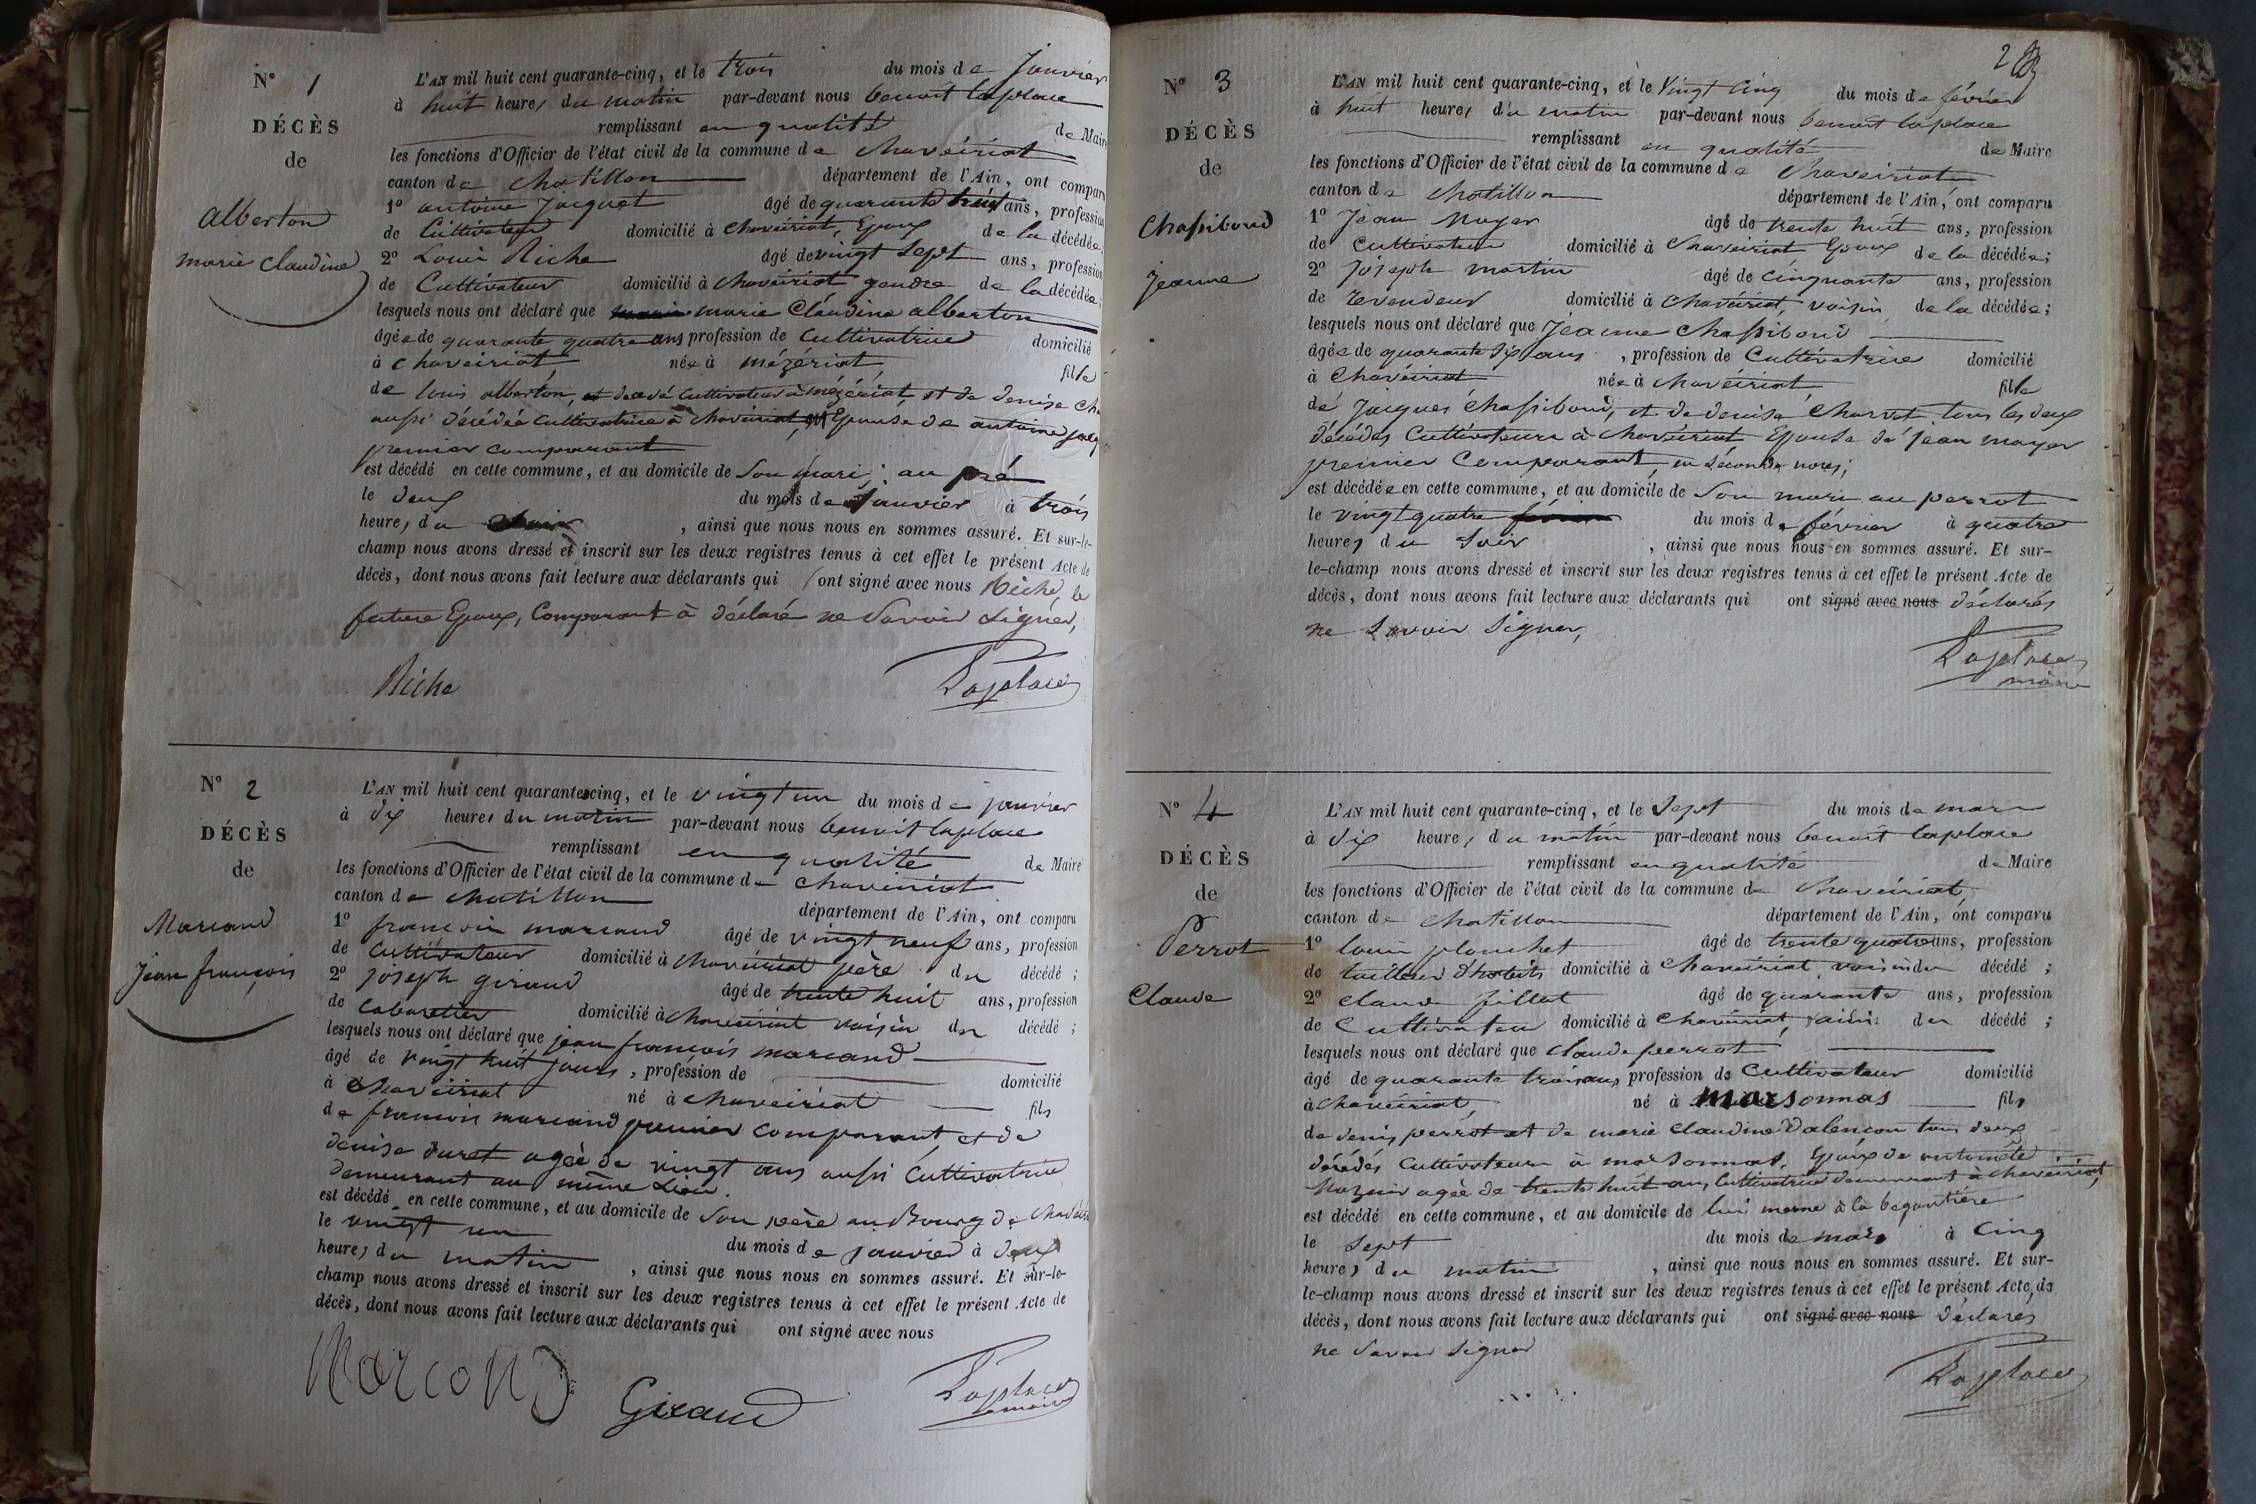 N° 1
DÉCÈS
de
alberton
marie Claudine
L'AN mil huit cent quarante-cinq, et le trois du mois de Janvier
à huit heures du matin par-devant nous benoit laplace
remplissant en qualité de Maire
les fonctions d'Officier de l'état civil de la commune de chaveiriat
canton de chatillon département de l'Ain, ont comparu
1° antoine Jacquet âgé de quarante huit ans, profession
de Cultivateur domicilié à chaveiriat, Epoux de la décédée;
2° Louis Riche âgé de vingt sept ans, profession
de Cultivateur domicilié à chaveiriat gendre de la décédée;
lesquels nous ont déclaré que marie Claudine alberton
âgée de quarante quatre ans profession de cultivatrice domicilié
à chaveiriat, née à mézériat, fille
de louis alberton, décédé cultivateur à mézériat et de denise
aussi décédée cultivatrice à chaveiriat, Epouse de antoine
premier comparant
est décédé en cette commune, et au domicile de son mari, au pré
le deux du mois de Janvier à trois
heures du , ainsi que nous nous en sommes assuré. Et sur-le-
champ nous avons dressé et inscrit sur les deux registres tenus à cet effet le présent Acte de
décès, dont nous avons fait lecture aux déclarants qui ont signé avec nous Riche, le
future Epoux, Comparant à déclaré ne savoir signer,
Riche Laplace
N° 2
DÉCÈS
de
Marcand
Jean françois
L'AN mil huit cent quarante-cinq, et le vingt un du mois de janvier
à dix heures du matin par-devant nous benoit laplace
remplissant en qualité de Maire
les fonctions d'Officier de l'état civil de la commune de chaveiriat
canton de chatillon département de l'Ain, ont comparu
1° françois marcand âgé de vingt neuf ans, profession
de Cultivateur domicilié à chaveiriat père du décédé;
2° joseph giraud âgé de trente huit ans, profession
de cabaretier domicilié à chaveiriat voisin du décédé;
lesquels nous ont déclaré que jean françois marcand
âgé de vingt huit jours, profession de domicilié
à chaveiriat né à chaveiriat fils
de françois marcand premier comparant et de
denise duret agée de vingt ans aussi Cultivatrice
demeurant au même Lieu.
est décédé en cette commune, et au domicile de son père au Bourg de
le vingt un du mois de janvier à deux
heures du matin, ainsi que nous nous en sommes assuré. Et sur-le-
champ nous avons dressé et inscrit sur les deux registres tenus à cet effet le présent Acte de
décès, dont nous avons fait lecture aux déclarants qui ont signé avec nous
Marcand Giraud Laplace
maire
2
N° 3
DÉCÈS
de
Chassiboud
Jeanne
L'AN mil huit cent quarante-cinq, et le vingt cinq du mois de février
à huit heures du matin par-devant nous benoit laplace
remplissant en qualité de Maire
les fonctions d'Officier de l'état civil de la commune de chaveiriat
canton de chatillon département de l'Ain, ont comparu
1° Jean Moyer âgé de trente huit ans, profession
de Cultivateur domicilié à chaveiriat Epoux de la décédée;
2° Joseph martin âgé de cinquante ans, profession
de revendeur domicilié à chaveiriat, voisin de la décédée;
lesquels nous ont déclaré que Jeanne chassiboud
âgée de quarante six ans, profession de Cultivatrice domicilié
à Chaveiriat née à chaveiriat fille
de Jacques chassiboud, et de denise charvet tous les deux
décédés Cultivateurs à chaveiriat Epouse de jean moyer
premier Comparant, en secondes noces;
est décédée en cette commune, et au domicile de son mari au perrot
le vingt quatre du mois de février à quatre
heures du soir, ainsi que nous nous en sommes assuré. Et sur-
le-champ nous avons dressé et inscrit sur les deux registres tenus à cet effet le présent Acte de
décès, dont nous avons fait lecture aux déclarants qui ont signé avec nous déclarés
ne savoir signer,
Laplace
maire
N° 4
DÉCÈS
de
Perrot
Claude
L'AN mil huit cent quarante-cinq, et le sept du mois de mars
à dix heures du matin par-devant nous benoit laplace
remplissant en qualité de Maire
les fonctions d'Officier de l'état civil de la commune de chaveiriat,
canton de chatillon département de l'Ain, ont comparu
1° louis planchet âgé de trente quatre ans, profession
de tailleur d'habits domicilié à chaveiriat, voisin du décédé;
2° claude fillat âgé de quarante ans, profession
de Cultivateur domicilié à chaveiriat, du décédé;
lesquels nous ont déclaré que claude perrot
âgé de quarante trois ans, profession de Cultivateur domicilié
à chaveiriat, né à marsonnas fils
de denis perrot et de marie claudine Dalencon tous deux
décédés Cultivateurs à marsonnas, Epoux de antoinette
agée de trente huit ans, Cultivatrice demeurant à chaveiriat,
est décédé en cette commune, et au domicile de lui même à la
le sept du mois de mars à cinq
heures du matin, ainsi que nous nous en sommes assuré. Et sur-
le-champ nous avons dressé et inscrit sur les deux registres tenus à cet effet le présent Acte de
décès, dont nous avons fait lecture aux déclarants qui ont signé avec nous déclarés
ne savoir signer
Laplace